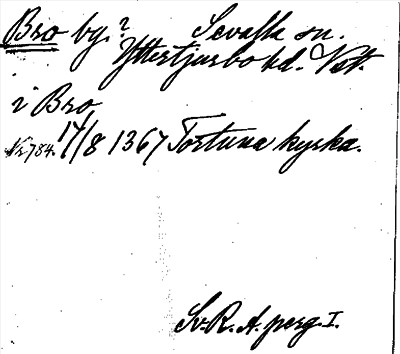 Bro by.? Sevalla sn.
Yttertjurbo hd. Vstm.
i Bro
Nr 784. 17/8 1367 Tortuna kyrka.
Sv. R. A. perg. I.